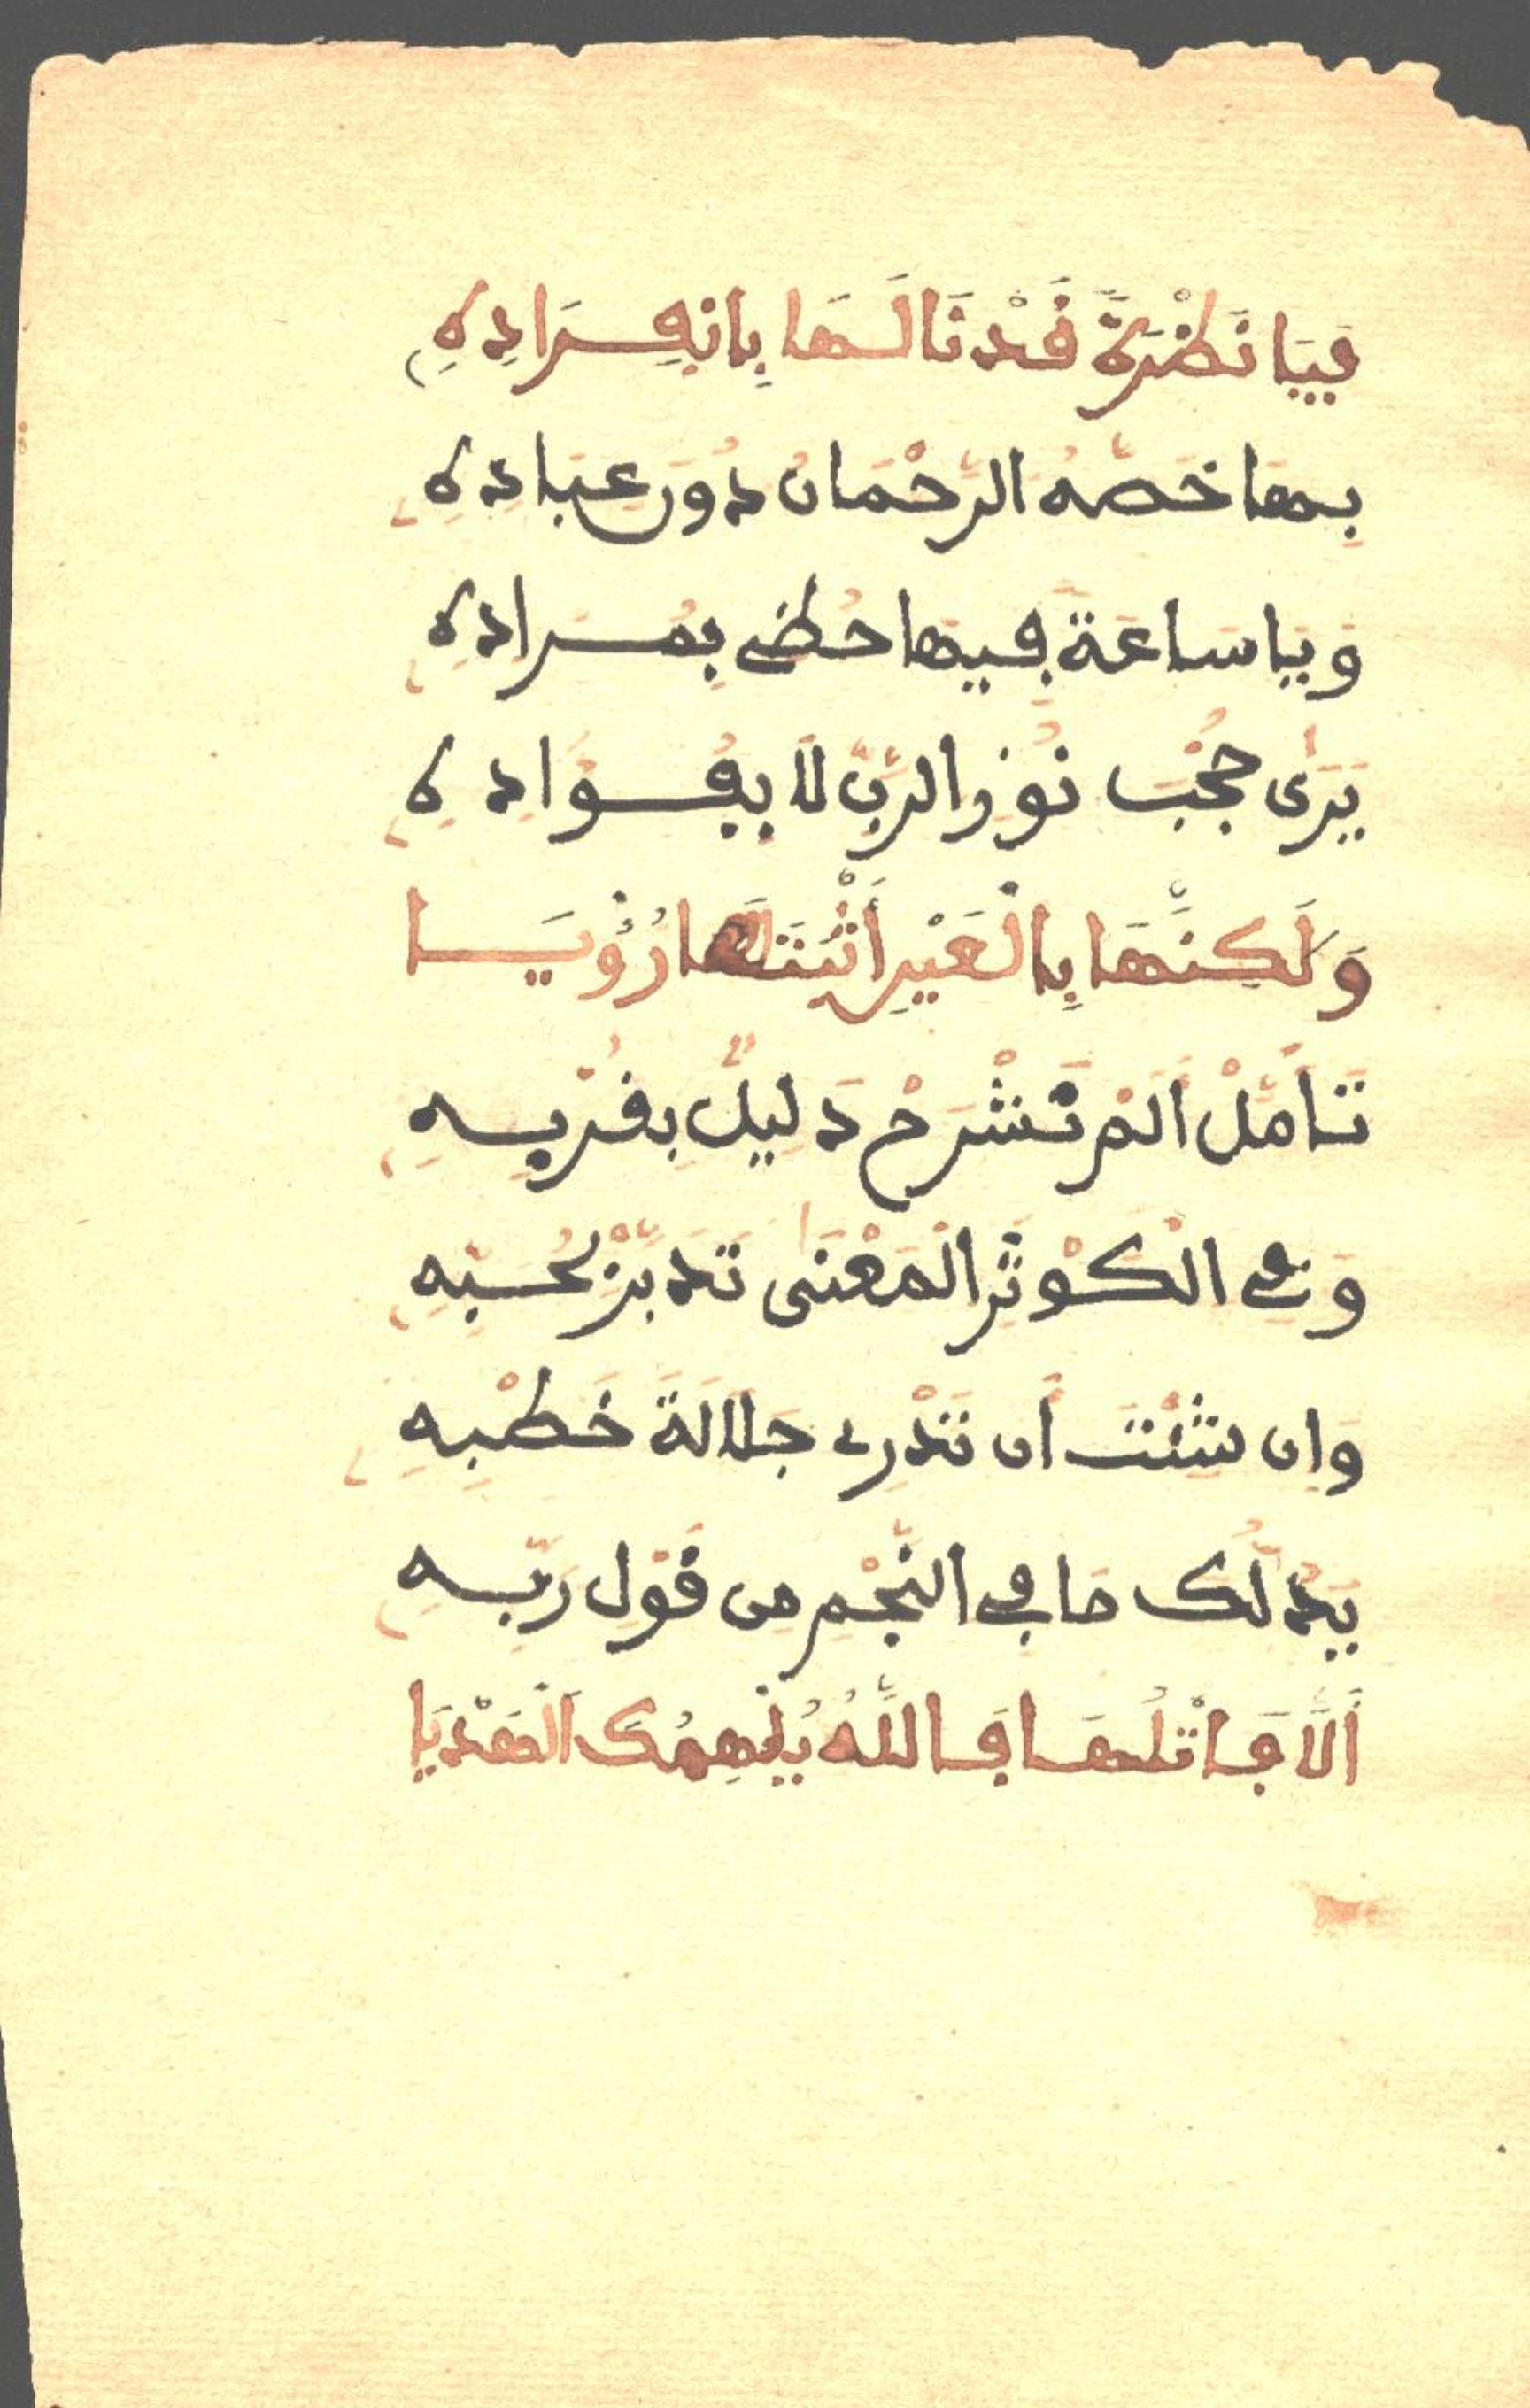 فَيَا نَظْرَةً قَدْ نَالَهَا بِانْفِرَادِهِ
بِهَا خَصَّهُ الرَّحْمَانُ دُونَ عِبَادِهِ
وَيَا سَاعَةً فِيهَا حُظِي بِمُرَادِهِ
يَرَى حُجْبَ نُورِ الرَّبِّ لَا بِفُوَادِهِ
وَلَكِنَّهَا بِالْعَيْنِ أَثْبَتَهَا رُؤْيَا
تَأَمَّلْ أَلَمْ نَشْرَحْ دَلِيلٌ بِقُرْبِهِ
وَفِي الْكَوْثَرِ الْمَعْنَى تَدَبَّرْ لِحُبِّهِ
وَإِن شِئْتَ أَن تَدْرِي جَلَالَةَ خَطْبِهِ
يَدُلُّكَ مَا فِي النَّجْمِ مِن قَوْلِ رَبِّهِ
أَلَا فَاتْلُهَا فَاللَّهُ يُلْهِمُكَ الْهَدْيَا